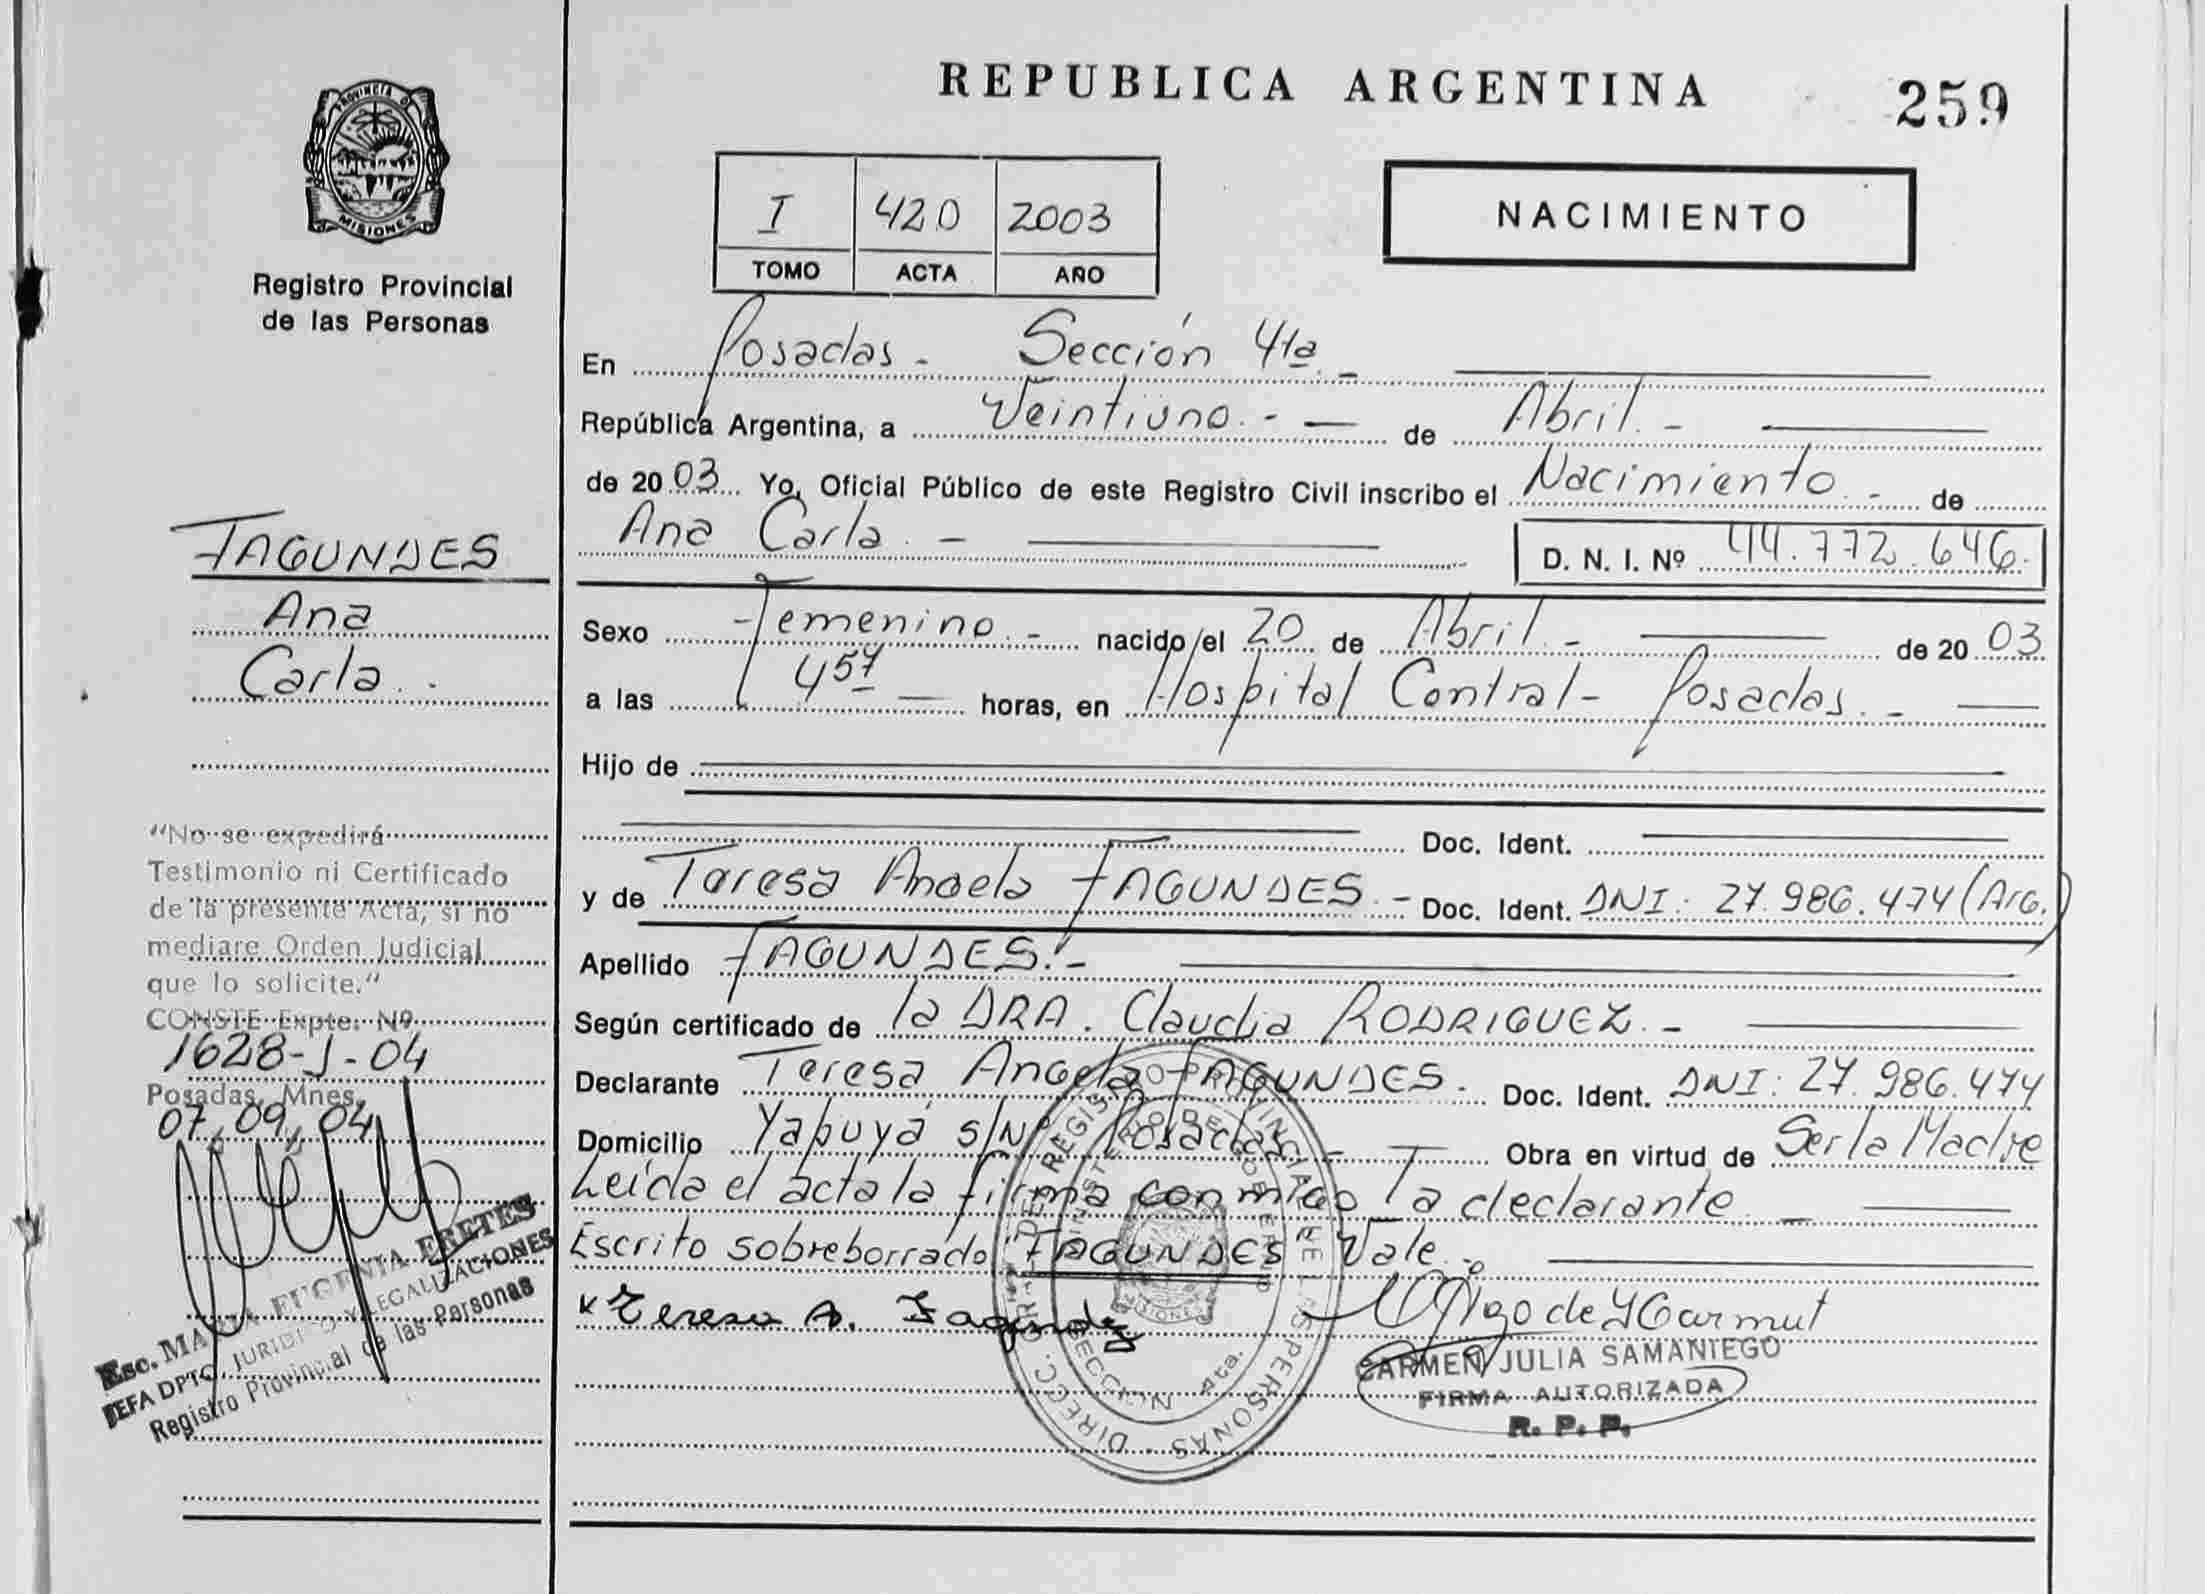 REPUBLICA ARGENTINA
259
PROVINCIA D
MISIONES
Registro Provincial
de las Personas
I 420 2003
TOMO ACTA AÑO
NACIMIENTO
En Posadas - Sección 4ta. -
República Argentina, a Veintiuno. - de Abril. -
de 2003 Yo, Oficial Público de este Registro Civil inscribo el Nacimiento. - de
Ana Carla. -
D. N. I. Nº 44.772.646.
FAGUNDES
Ana
Carla. -
Sexo Femenino. - nacido el 20 de Abril. - de 2003
a las 457 horas, en Hospital Central - Posadas. -
Hijo de
Doc. Ident.
y de Teresa Angela FAGUNDES. - Doc. Ident. DNI: 27.986.474 (Arg.)
Apellido FAGUNDES. -
Según certificado de la DRA. Claudia RODRIGUEZ. -
Declarante Teresa Angela FAGUNDES. Doc. Ident. DNI: 27.986.474
Domicilio Yabuyá s/Nº Posadas - Obra en virtud de Ser la Madre
Leída el acta la firma conmigo la declarante. -
Escrito sobreborrado "FAGUNDES" Vale. -
Teresa A. Fagundez
CARMEN JULIA SAMANIEGO
FIRMA AUTORIZADA
R. P. P.
"No se expedirá
Testimonio ni Certificado
de la presente Acta, si no
mediare Orden Judicial
que lo solicite."
CONSTE Expte. Nº
1628-J-04
Posadas, Mnes,
07,09,04
Esc. MARIA EUGENIA FRETES
JEFA DPTO. JURIDICO Y LEGALIZACIONES
Registro Provincial de las Personas
DIRECC. GR. DE REGISTRO PROVINCIAL DE LAS PERSONAS
MINISTERIO DE GOBIERNO
SECCION 4ta.
MISIONES